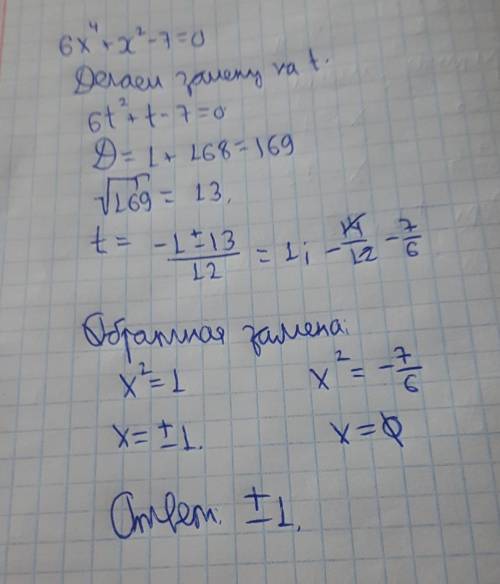 6x⁴+x²-7=0
Делаем замену на t.
6t²+t-7=0
D=1+168=169
√169=13.
t= (-1±13)/12 =1; -14/12 -7/6
Обратная замена:
x²=1 x²=-7/6
x=±1. x=∅
Ответ. ±1.